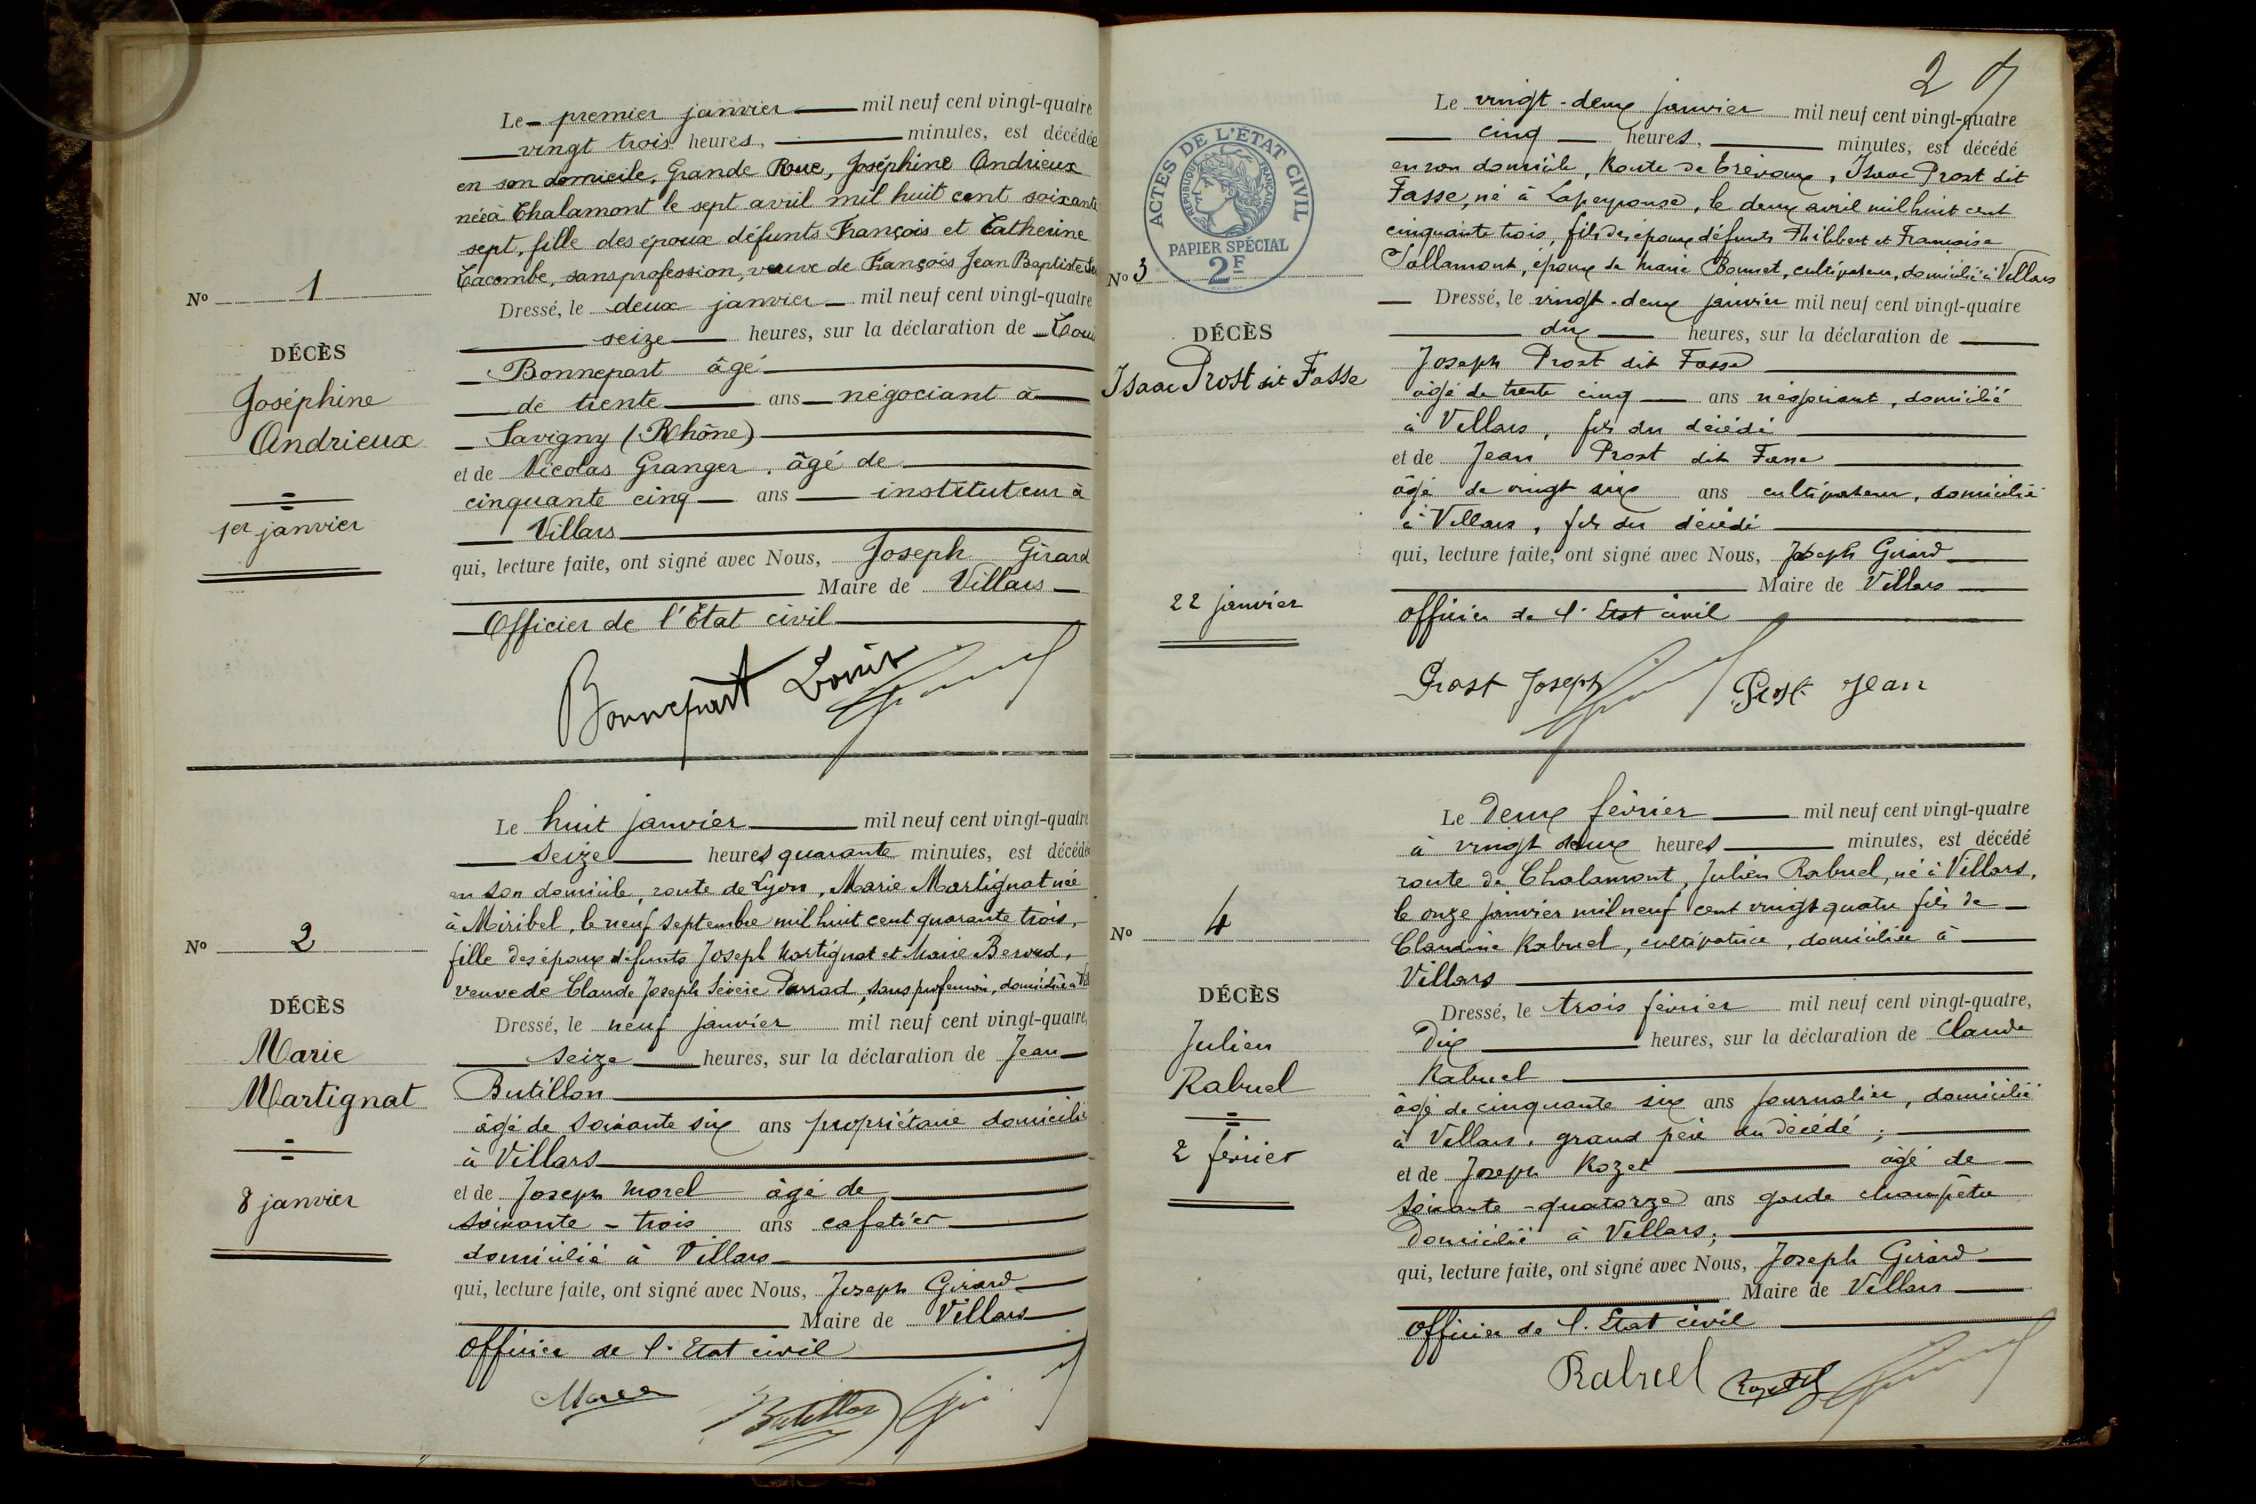 Le premier janvier mil neuf cent vingt-quatre
vingt trois heures, minutes, est décédée
en son domicile, Grande Rue, Joséphine Andrieux
née à Chalamont le sept avril mil huit cent soixante
sept, fille des époux défunts François et Catherine
Lacombe, sans profession, veuve de François Jean Baptiste
No 1
Dressé, le deux janvier mil neuf cent vingt-quatre
seize heures, sur la déclaration de Loui
DÉCÈS
Joséphine
Andrieux
1er janvier
Bonnepart âgé
de trente ans négociant à
Savigny (Rhône)
et de Nicolas Granger, âgé de
cinquante cinq ans instituteur à
Villars
qui, lecture faite, ont signé avec Nous, Joseph Girard
Maire de Villars
Officier de l'Etat civil
Bonnepart Louis
Le huit janvier mil neuf cent vingt-quatre
seize heures quarante minutes, est décédée
en son domicile, route de Lyon, Marie Martignat née
à Miribel, le neuf septembre mil huit cent quarante trois,
fille des époux défunts Joseph Martignat et Marie
veuve de Claude Joseph Sévère Parrad, sans profession, domiciliée à
No 2
DÉCÈS
Marie
Martignat
8 janvier
Dressé, le neuf janvier mil neuf cent vingt-quatre,
seize heures, sur la déclaration de Jean
Butillon
âgé de soixante six ans propriétaire domicilié
à Villars
et de Joseph Morel âgé de
soixante-trois ans cafetier
domicilié à Villars
qui, lecture faite, ont signé avec Nous, Joseph Girard
Maire de Villars
Officier de l'Etat civil
Morel
Butillon
2
ACTES DE L'ÉTAT CIVIL
RÉPUBLIQUE FRANÇAISE
PAPIER SPÉCIAL
2F
Le vingt-deux janvier mil neuf cent vingt-quatre
cinq heures, minutes, est décédé
en son domicile, Route de Trévoux, Isaac Prost dit
Fasse, né à Lapeyrouse, le deux avril mil huit cent
cinquante trois, fils des époux défunts Philibert et Françoise
Tallamont, époux de Marie Bonnet, cultivateur, domicilié à Villars
No 3
DÉCÈS
Isaac Prost dit Fasse
22 janvier
Dressé, le vingt-deux janvier mil neuf cent vingt-quatre
dix heures, sur la déclaration de
Joseph Prost dit Fasse
âgé de trente cinq ans négociant, domicilié
à Villars, fils du décédé
et de Jean Prost dit Fasse
âgé de vingt six ans cultivateur, domicilié
à Villars, fils du décédé
qui, lecture faite, ont signé avec Nous, Joseph Girard
Maire de Villars
Officier de l'Etat civil
Prost Joseph
Prost Jean
Le deux février mil neuf cent vingt-quatre
à vingt deux heures minutes, est décédé
route de Chalamont, Julien Rabuel, né à Villars,
le onze janvier mil neuf cent vingt quatre fils de
Claudine Rabuel, cultivatrice, domiciliée à
Villars
No 4
DÉCÈS
Julien
Rabuel
2 février
Dressé, le trois février mil neuf cent vingt-quatre,
Dix heures, sur la déclaration de Claude
Rabuel
âgé de cinquante six ans journalier, domicilié
à Villars, grand père du décédé;
et de Joseph Rozet âgé de
soixante-quatorze ans garde champêtre
Domicilié à Villars;
qui, lecture faite, ont signé avec Nous, Joseph Girard
Maire de Villars
Officier de l'Etat civil
Rabuel